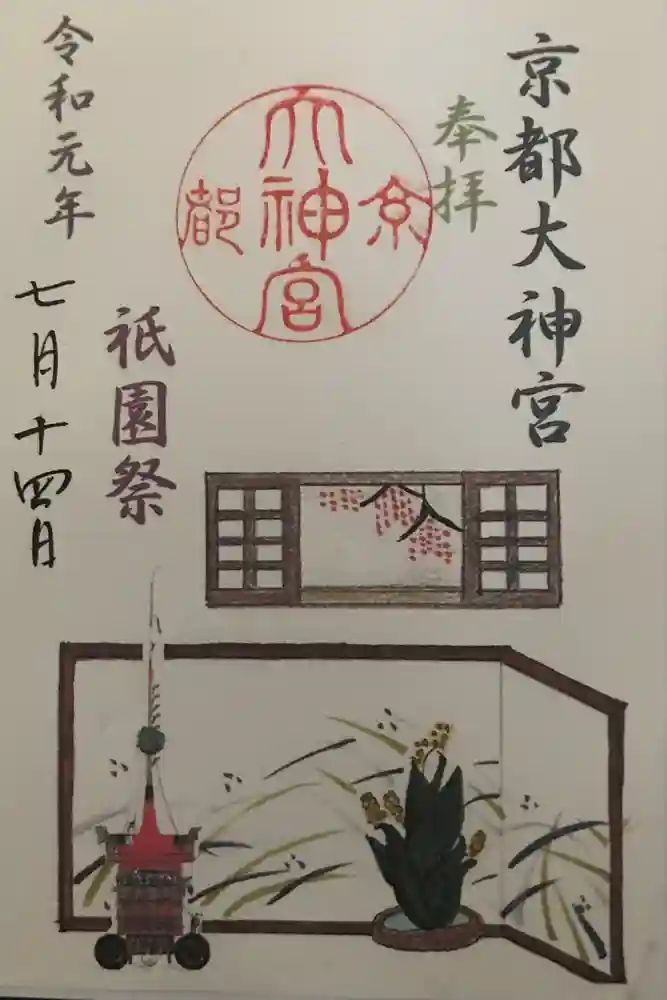 京都大神宮
奉拝
京都
大神宮
祇園祭
令和元年
七月十四日